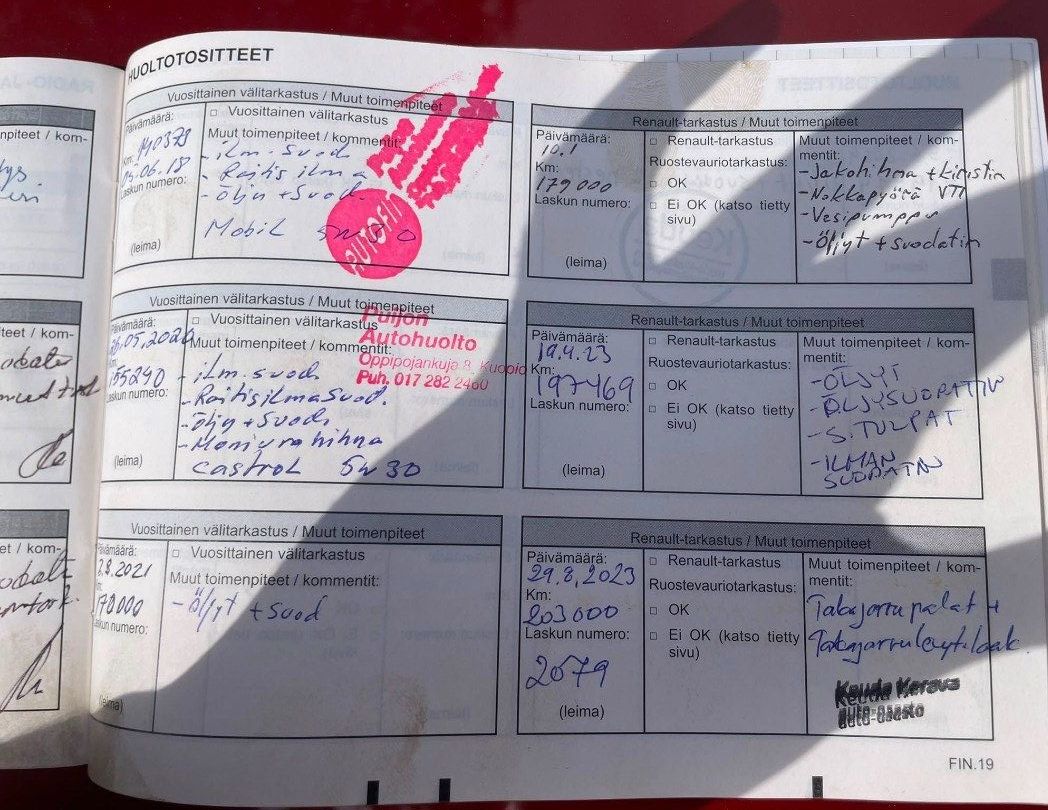 HUOLTOTOSITTEET
Vuosittainen välitarkastus / Muut toimenpiteet
Päivämäärä:
□ Vuosittainen välitarkastus
140379
Muut toimenpiteet / kommentit:
Km:
05.06.18
Laskun numero:
- ilm. suod
- Raitis ilma
- öljy + Suod.
Mobil 5W30
(leima)
AUTOFIT
Vuosittainen välitarkastus / Muut toimenpiteet
Päivämäärä:
□ Vuosittainen välitarkastus
26.05.2020
Muut toimenpiteet / kommentit:
155240
Laskun numero:
- ilm. suod
- Raitisilmasuod.
- öljy + Suod.
- Moniurahihna
castrol 5w30
(leima)
Puijon
Autohuolto
Oppipojankuja 8, Kuopio
Puh. 017 282 2460
Vuosittainen välitarkastus / Muut toimenpiteet
Päivämäärä:
□ Vuosittainen välitarkastus
.8.2021
Muut toimenpiteet / kommentit:
170000
- öljyt + suod
Laskun numero:
(leima)
Renault-tarkastus / Muut toimenpiteet
Päivämäärä:
10.1
Km:
179000
Laskun numero:
(leima)
□ Renault-tarkastus
Ruostevauriotarkastus:
□ OK
□ Ei OK (katso tietty
sivu)
Muut toimenpiteet / kom-
mentit:
- Jakohihna + kiristin
- Nokkapyörä VTI
- Vesipumppu
- Öljyt + suodatin
Renault-tarkastus / Muut toimenpiteet
Päivämäärä:
19.4.23
Km:
197469
Laskun numero:
(leima)
□ Renault-tarkastus
Ruostevauriotarkastus:
□ OK
□ Ei OK (katso tietty
sivu)
Muut toimenpiteet / kom-
mentit:
- ÖLJYT
- ÖLJYSUODATIN
- S.TULPAT
- ILMAN
SUODATIN
Renault-tarkastus / Muut toimenpiteet
Päivämäärä:
29.8.2023
Km:
203000
Laskun numero:
2079
(leima)
□ Renault-tarkastus
Ruostevauriotarkastus:
□ OK
□ Ei OK (katso tietty
sivu)
Muut toimenpiteet / kom-
mentit:
Takajarrupalat +
Takajarrulevyt
Keuda Kerava
auto-osasto
FIN.19